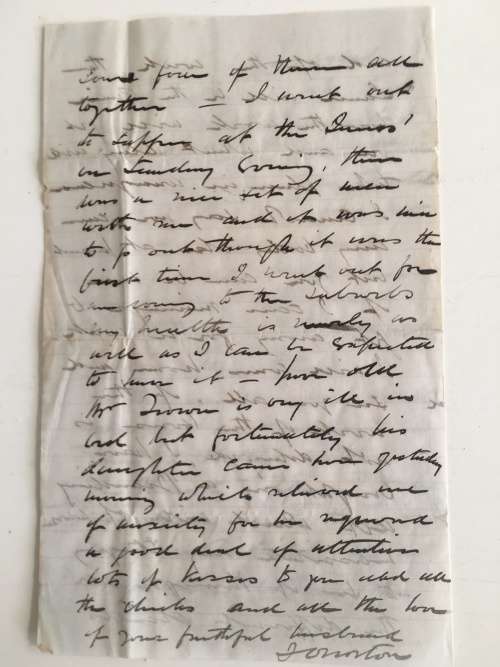 four of them all
together – I went out
to supper at the
on Sunday Evening, there
was a nice set of men
with me and it was nice
to go out though it was the
first time I went out for
an evening to the suburbs
my health is nearly as
well as I can be expected
to have it – poor old
Mr is very ill in
bed but fortunately his
daughter came here yesterday
morning which relieved me
of anxiety for he required
a good deal of attention
lots of kisses to you and all
the chicks and all the love
of your faithful husband